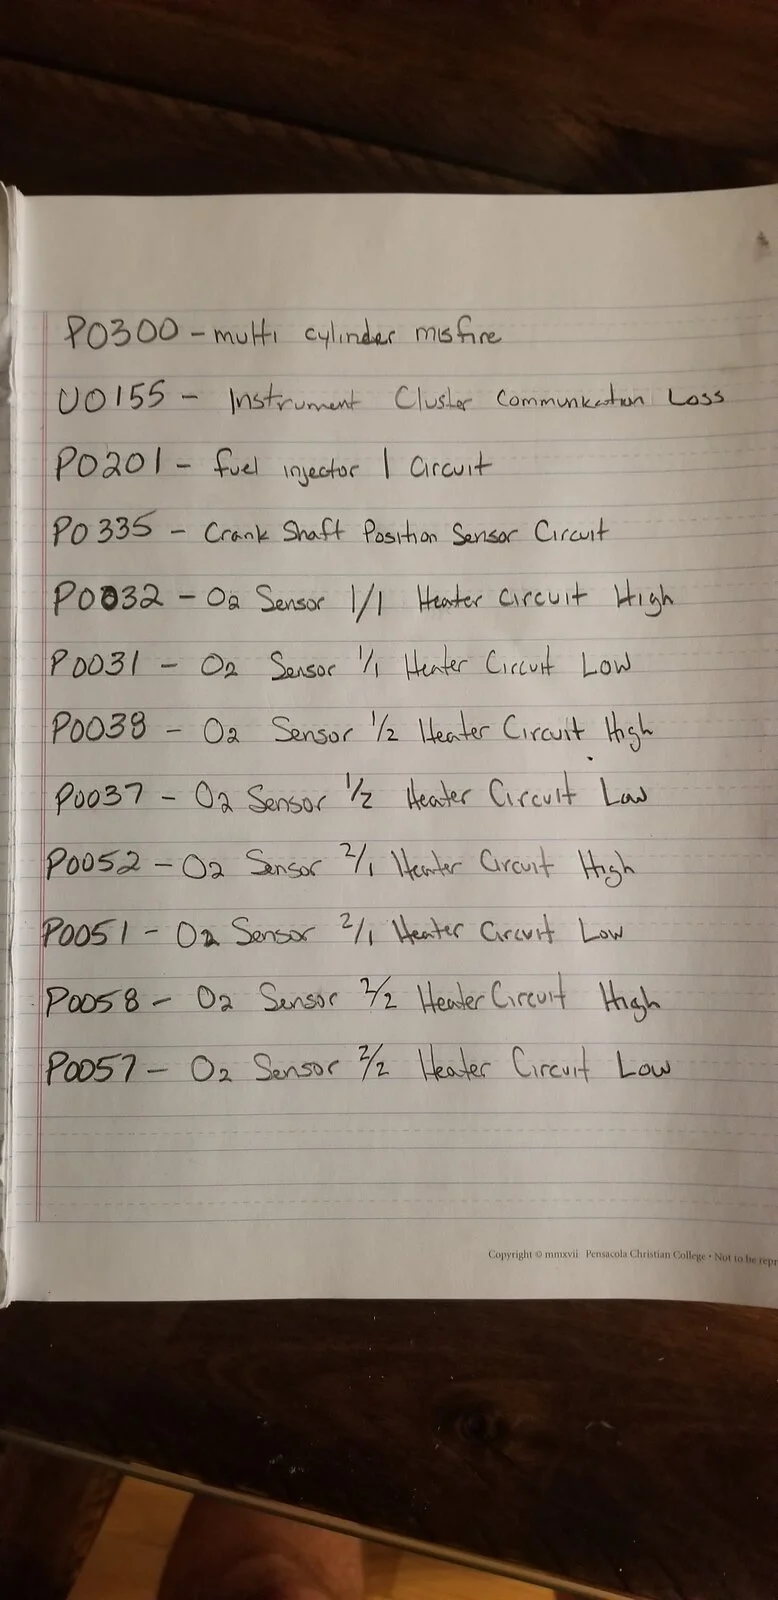 P0300 - multi cylinder misfire
U0155 - Instrument Cluster Communication Loss
P0201 - fuel injector 1 Circuit
P0335 - Crank Shaft Position Sensor Circuit
P0032 - O2 Sensor 1/1 Heater Circuit High
P0031 - O2 Sensor 1/1 Heater Circuit Low
P0038 - O2 Sensor 1/2 Heater Circuit High
P0037 - O2 Sensor 1/2 Heater Circuit Low
P0052 - O2 Sensor 2/1 Heater Circuit High
P0051 - O2 Sensor 2/1 Heater Circuit Low
P0058 - O2 Sensor 2/2 Heater Circuit High
P0057 - O2 Sensor 2/2 Heater Circuit Low
Copyright © mmxvii Pensacola Christian College • Not to be repr